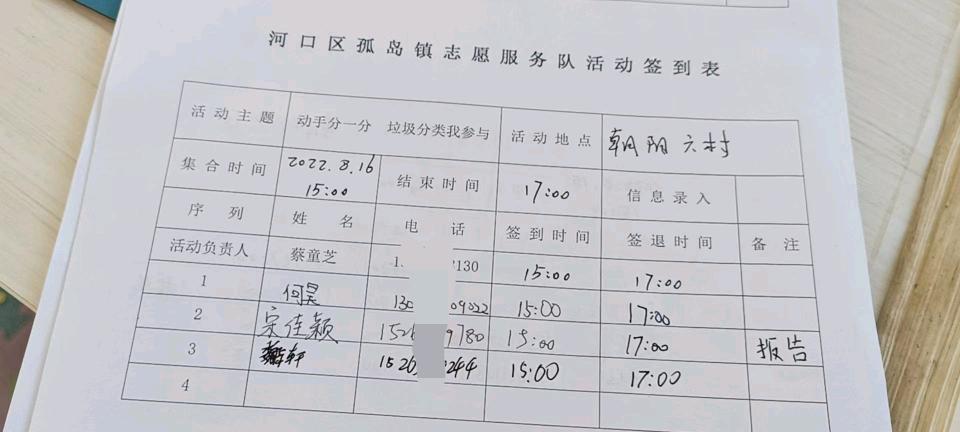 河口区孤岛镇志愿服务队活动签到表
活动主题 动手分一分 垃圾分类我参与 活动地点 朝阳六村
集合时间 2022.8.16 15:00 结束时间 17:00 信息录入
序列 姓名 电话 签到时间 签退时间 备注
活动负责人 蔡童芝 1 130 15:00 17:00
1 何昊 130 09022 15:00 17:00
2 宋佳颖 1526 9780 15:00 17:00 报告
3 轩 1526 244 15:00 17:00
4